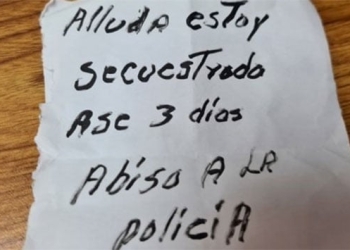 Alluda estoy
secuestrada
Ase 3 dias
Abiso A LA
policiA